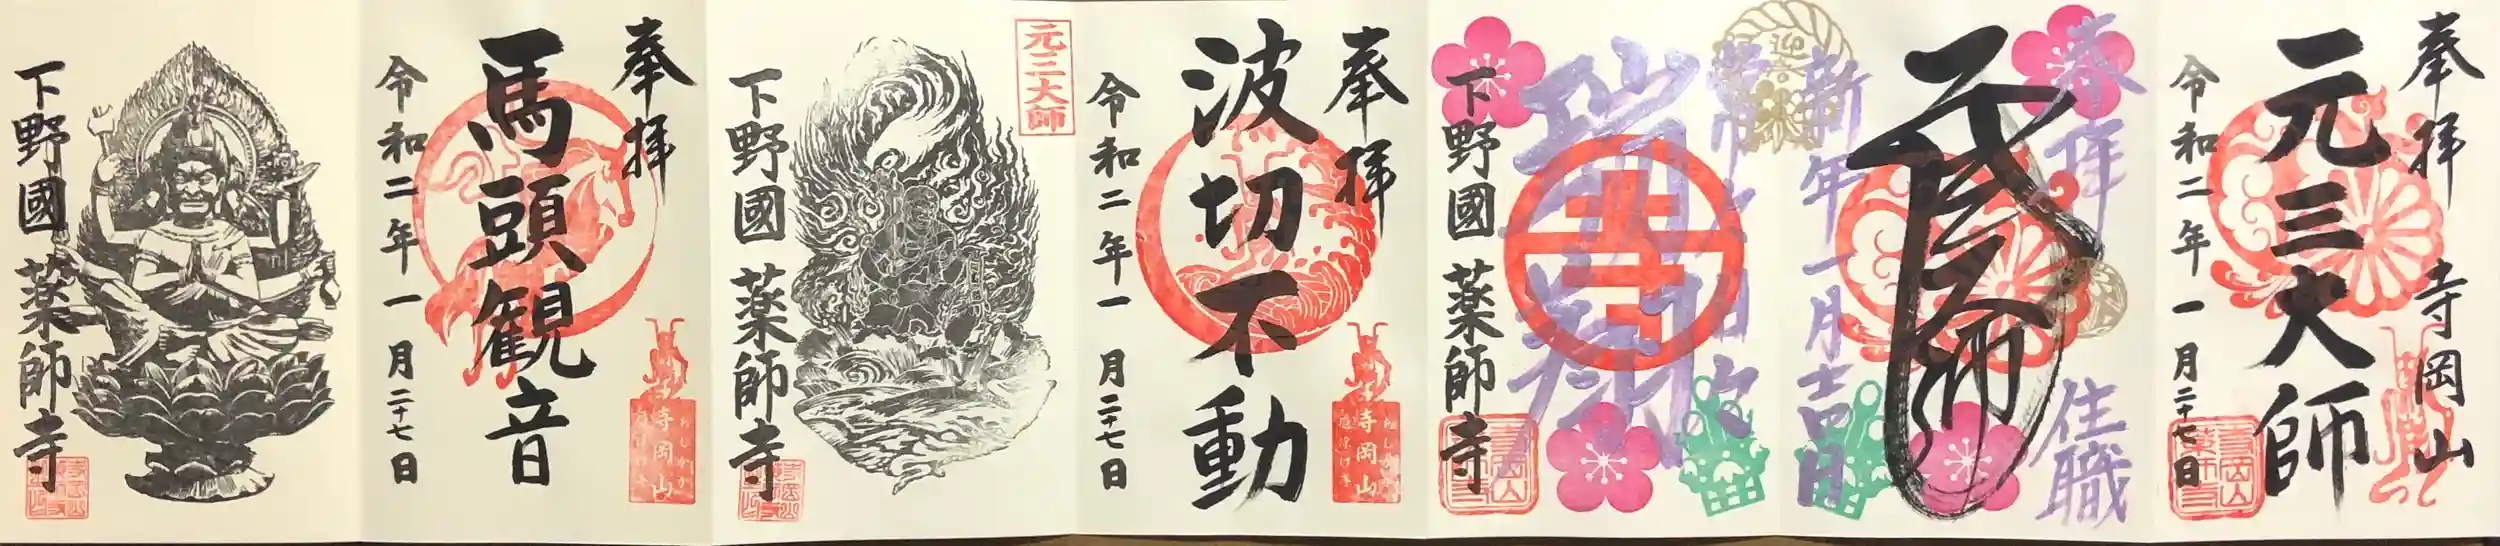 奉拝
寺岡山
元三大師
令和二年一月二十七日
奉拝
住職
新年一月吉日
瑞翔
下野國 薬師寺
奉拝
波切不動
令和二年一月二十七日
寺岡山
元三大師
下野國 薬師寺
奉拝
馬頭観音
令和二年一月二十七日
寺岡山
下野國 薬師寺